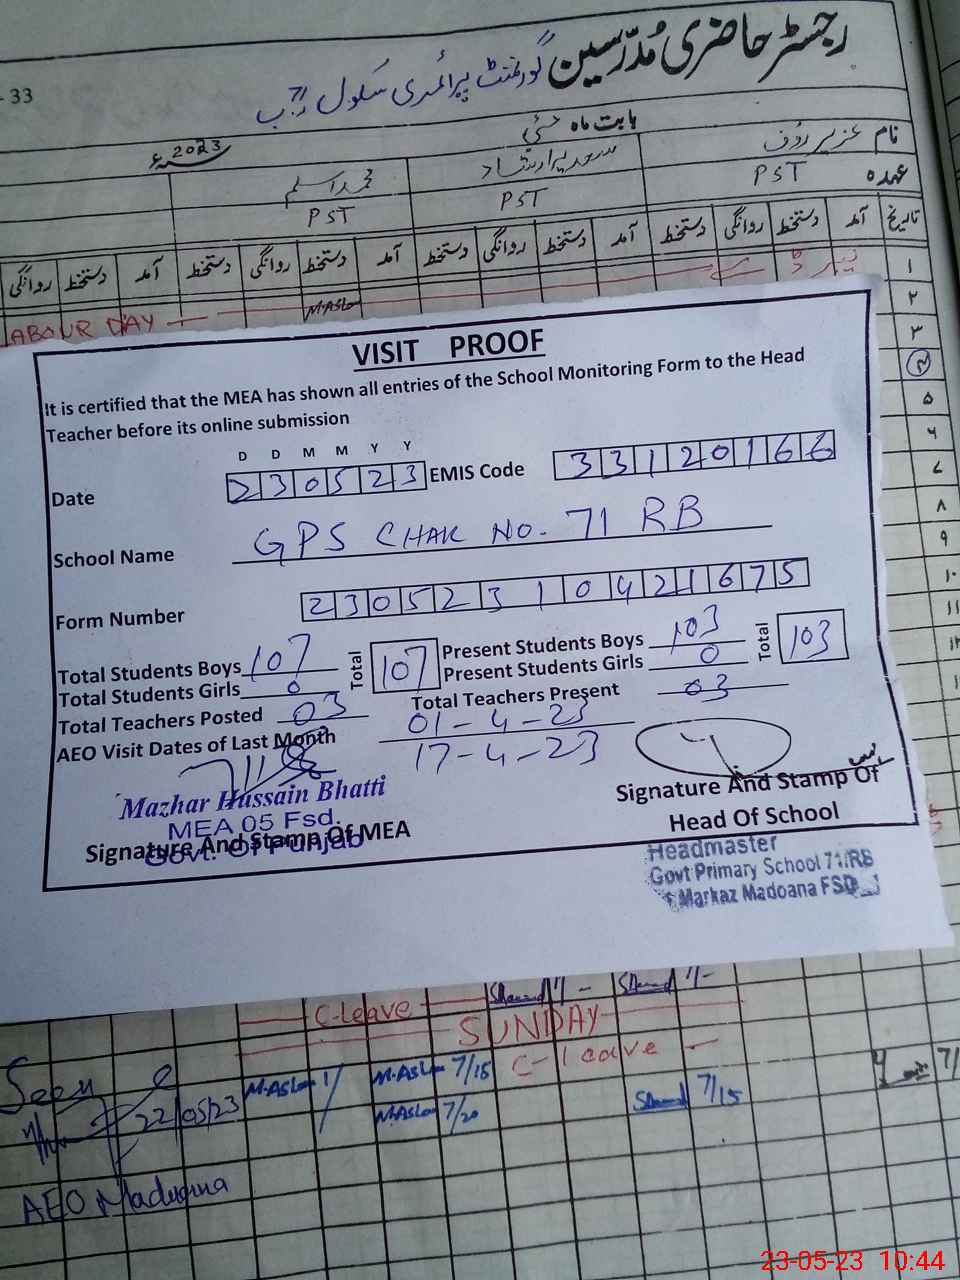 رجسٹر حاضری مدرسین گورنمنٹ پرائمری سکول 71 ر ب
33
بابت ماہ مئی
2023ء
نام عزیر رؤف
محمد اسلم
عہدہ PST PST PST
تاریخ آمد دستخط روانگی دستخط آمد دستخط روانگی دستخط آمد دستخط روانگی دستخط آمد دستخط روانگی
۱
LABOUR DAY
M.Aslam
۲
۳
۴
۵
۶
۷
۸
۹
۱۰
۱۱
VISIT PROOF
It is certified that the MEA has shown all entries of the School Monitoring Form to the Head
Teacher before its online submission
D D M M Y Y
Date 230523 EMIS Code 33120166
School Name GPS CHAK NO. 71 RB
Form Number 23052310421675
Total Students Boys 107 Total 107 Present Students Boys 103 Total 103
Total Students Girls 0 Present Students Girls 0
Total Teachers Posted 03 Total Teachers Present 03
AEO Visit Dates of Last Month 01-4-23
17-4-23
Mazhar Hussain Bhatti
MEA 05 Fsd.
Govt. Of Punjab
Signature And Stamp Of MEA
Signature And Stamp Of
Head Of School
Headmaster
Govt Primary School 71/RB
Markaz Madoana FSD
C-leave
SUNDAY
C-leave
Seen
22/05/23
M.Aslam M.Aslam 7/15
M.Aslam 7/20
7/15
AEO Madoana
23-05-23 10:44